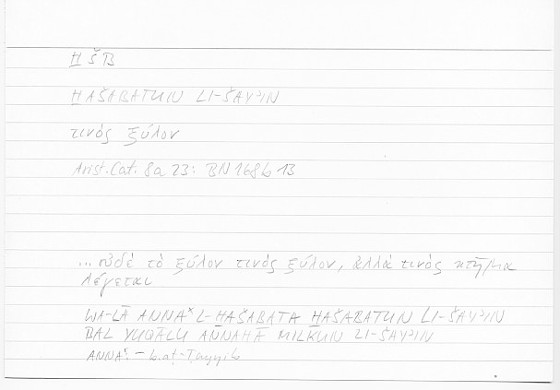 H̲ŠB
H̲AŠABATUN LI-ŠAYʾIN
τινός ξύλον
Arist. Cat. 8a 23: BN 168b 13
... οὐδὲ τὸ ξύλον τινὸς ξύλον, ἀλλὰ τινὸς κτῆμα
λέγεται
WA-LĀ ANNAˣ L-H̲AŠABATA H̲AŠABATUN LI-ŠAYʾIN
BAL YUQĀLU ANNAHĀ MILKUN LI-ŠAYʾIN
ANNA: – b. aṭ-Ṭayyib